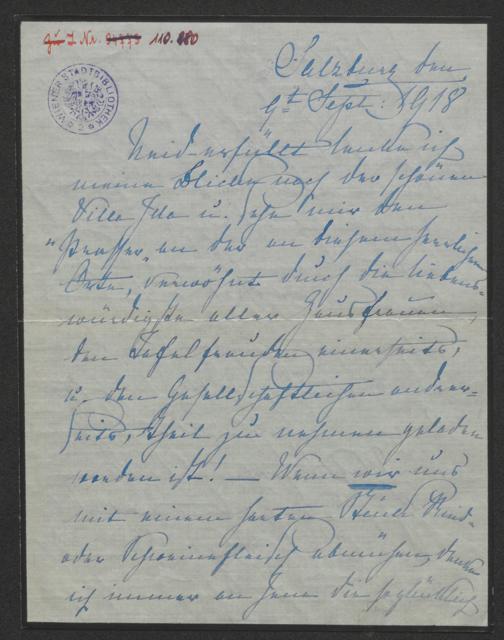 zu I. Nr. 94773 110.880
WIENER STADTBIBLIOTHEK
Salzburg den,
9t Sept: 1918
Neid erfüllt lenke ich
meine Blicke nach der schönen
Villa Ida u. sehe mir den
"Prasser" an der an diesem herrlichen
Orte, verwöhnt durch die liebens-
würdigste aller Hausfrauen,
den Tafelfreuden einerseits,
u. den Gesellschaftlichen anderer-
seits, theil zu nehmen geladen
worden ist! — Wenn wir uns
mit einem harten Stück Rind-
oder Schweinefleisch abmühen, denke
ich immer an jene die so glücklich